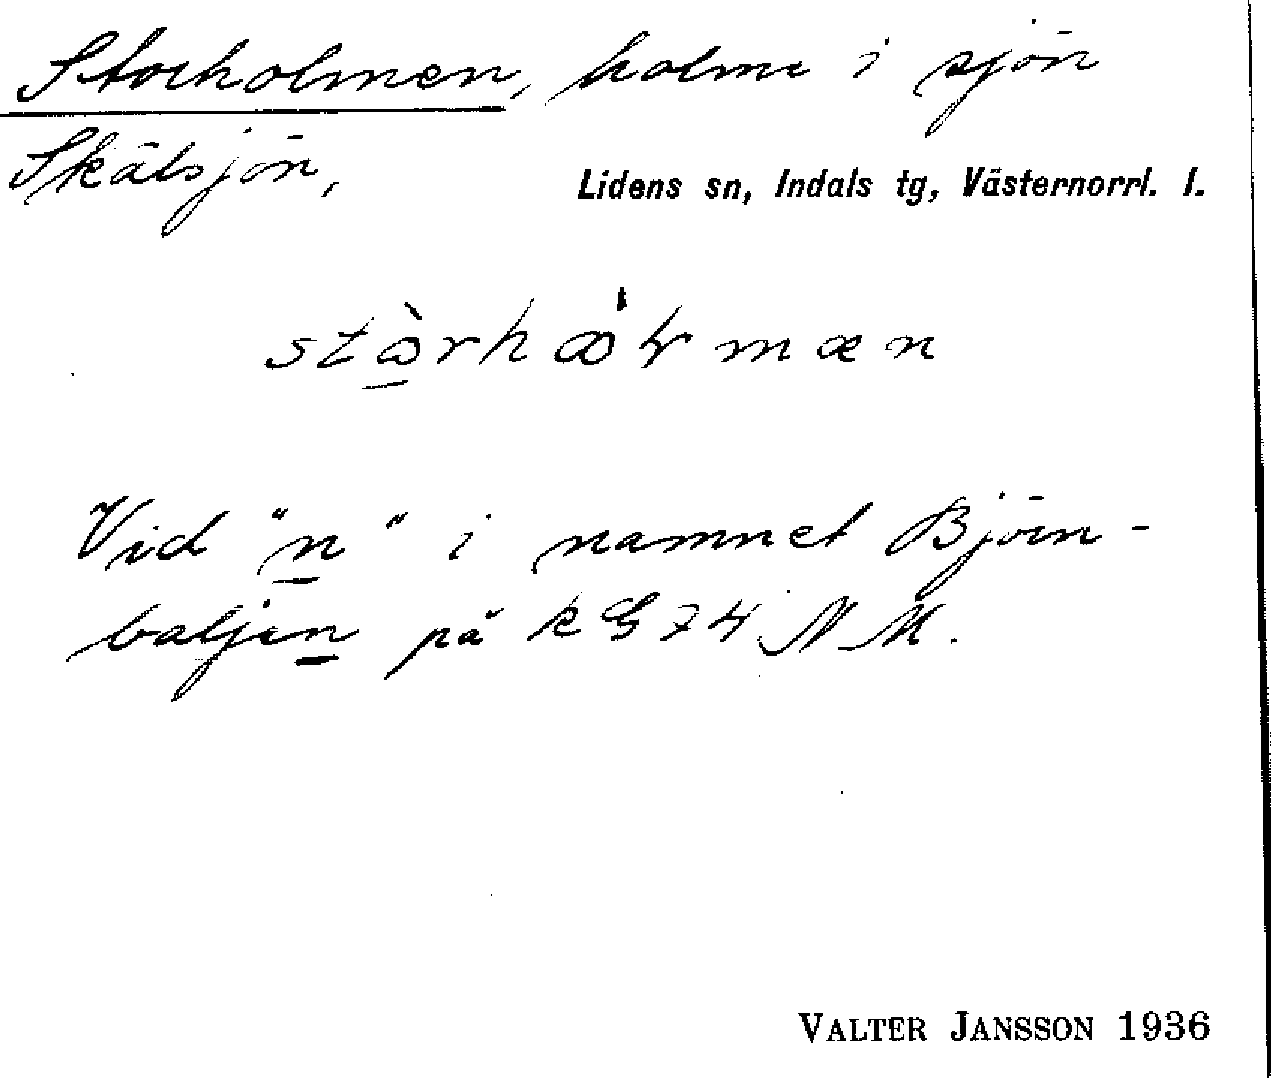 Storholmen, holme i sjön
Skälsjön,
Lidens sn, Indals tg, Västernorrl. l.
Vid "n" i namnet Björn-
baljen på k G 74 NM.
VALTER JANSSON 1936